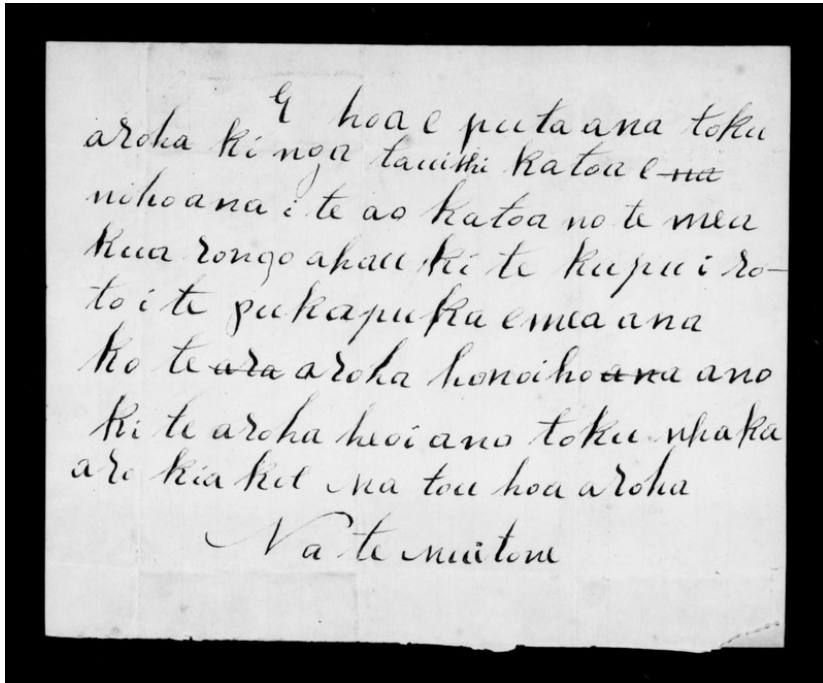 E hoa e puta ana toku
aroha ki nga tauiwi katoa e na
noho ana i te ao katoa no te mea
kua rongo ahau ki te kupu i ro-
to i te pukapuka e mea ana
ko te ara aroha honoiho ana ano
ki te aroha heoi ano toku whaka
aro kia koe na tou hoa aroha
Na te